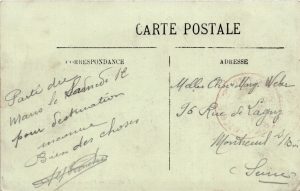 CARTE POSTALE
CORRESPONDANCE
ADRESSE
Parti du
Mans le Samedi 12
pour destination
inconnue
Bien des choses
Melles Cher Marg.
96 Rue de Lagny
Montreuil s/Bois
Seine